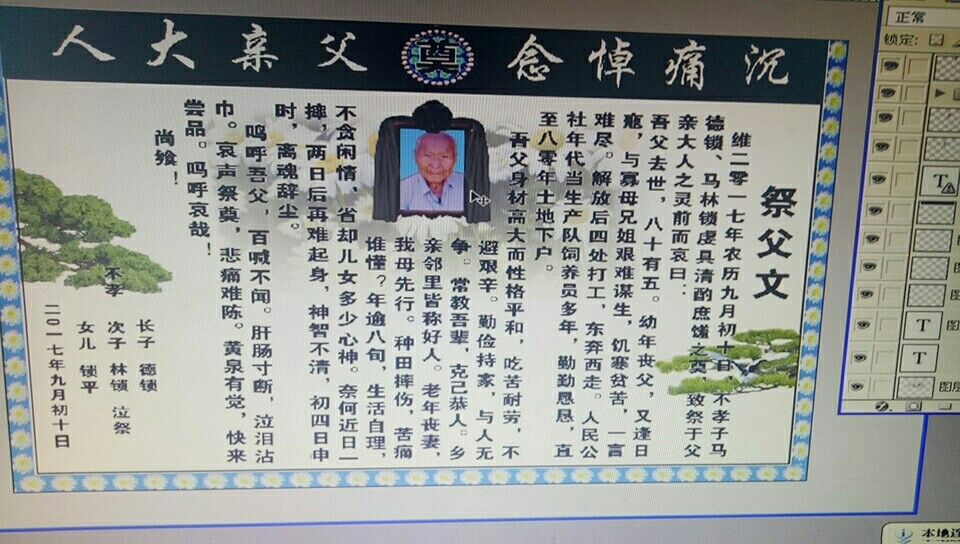 沉痛悼念 奠 父亲大人
祭父文
维二零一七年农历九月初十日,不孝子马
德锁、马林锁虔具清酌庶馐之奠,致祭于父
亲大人之灵前而哀曰:
吾父去世,八十有五。幼年丧父,又逢日
寇,与寡母兄姐艰难谋生,饥寒贫苦,一言
难尽。解放后四处打工,东奔西走。人民公
社年代当生产队饲养员多年,勤勤恳恳,直
至八零年土地下户。
吾父身材高大而性格平和,吃苦耐劳,不
避艰辛。勤俭持家,与人无
争。常教吾辈,克己恭人。乡
亲邻里皆称好人。老年丧妻,
我母先行。种田摔伤,苦痛
谁懂?年逾八旬,生活自理,
不贪闲情,省却儿女多少心神。奈何近日一
摔,两日后再难起身,神智不清,初四日申
时,离魂辞尘。
呜呼吾父,百喊不闻。肝肠寸断,泣泪沾
巾。哀声祭奠,悲痛难陈。黄泉有觉,快来
尝品。呜呼哀哉!
尚飨!
不孝
长子 德锁
次子 林锁 泣祭
女儿 锁平
二〇一七年九月初十日
正常
锁定:
T
T
T
图层
图层
本地连